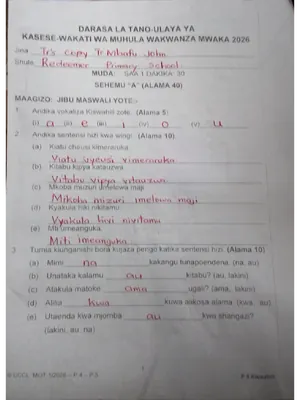 DARASA LA TANO-ULAYA YA
KASESE-WAKATI WA MUHULA WAKWANZA MWAKA 2026
Jina Tr's copy Tr Mbafu John
Shule Redeemer Primary School
MUDA: SAA 1 DAKIKA 30
SEHEMU "A" (ALAMA 40)
MAAGIZO: JIBU MASWALI YOTE:-
1. Andika vokali za Kiswahili zote. (Alama 5)
(i) a (ii) e (iii) i (iv) o (v) u
2. Andika sentensi hizi kwa wingi. (Alama 10).
(a) Kiatu cheusi kimeraruka
Viatu vyeusi vimeraruka
(b) Kitabu kipya kitauzwa
Vitabu vipya vitauzwa
(c) Mkoba mzuri umelowa maji
Mikoba mizuri imelowa maji
(d) Kyakula hiki nikitamu
Vyakula hivi nivitamu
(e) Mti umeanguka
Miti imeanguka
3. Tumia kiunganishi bora kujaza pengo katika sentensi hizi. (Alama 10)
(a) Mimi na kakangu tunapoendena. (na, au)
(b) Unataka kalamu au kitabu? (au, lakini)
(c) Atakula matoke ama ugali? (ama, lakini)
(d) Alilia kwa kuwa alikosa alama (kwa, au)
(e) Utaenda kwa mjomba au kwa shangazi?
(lakini, au na)
1